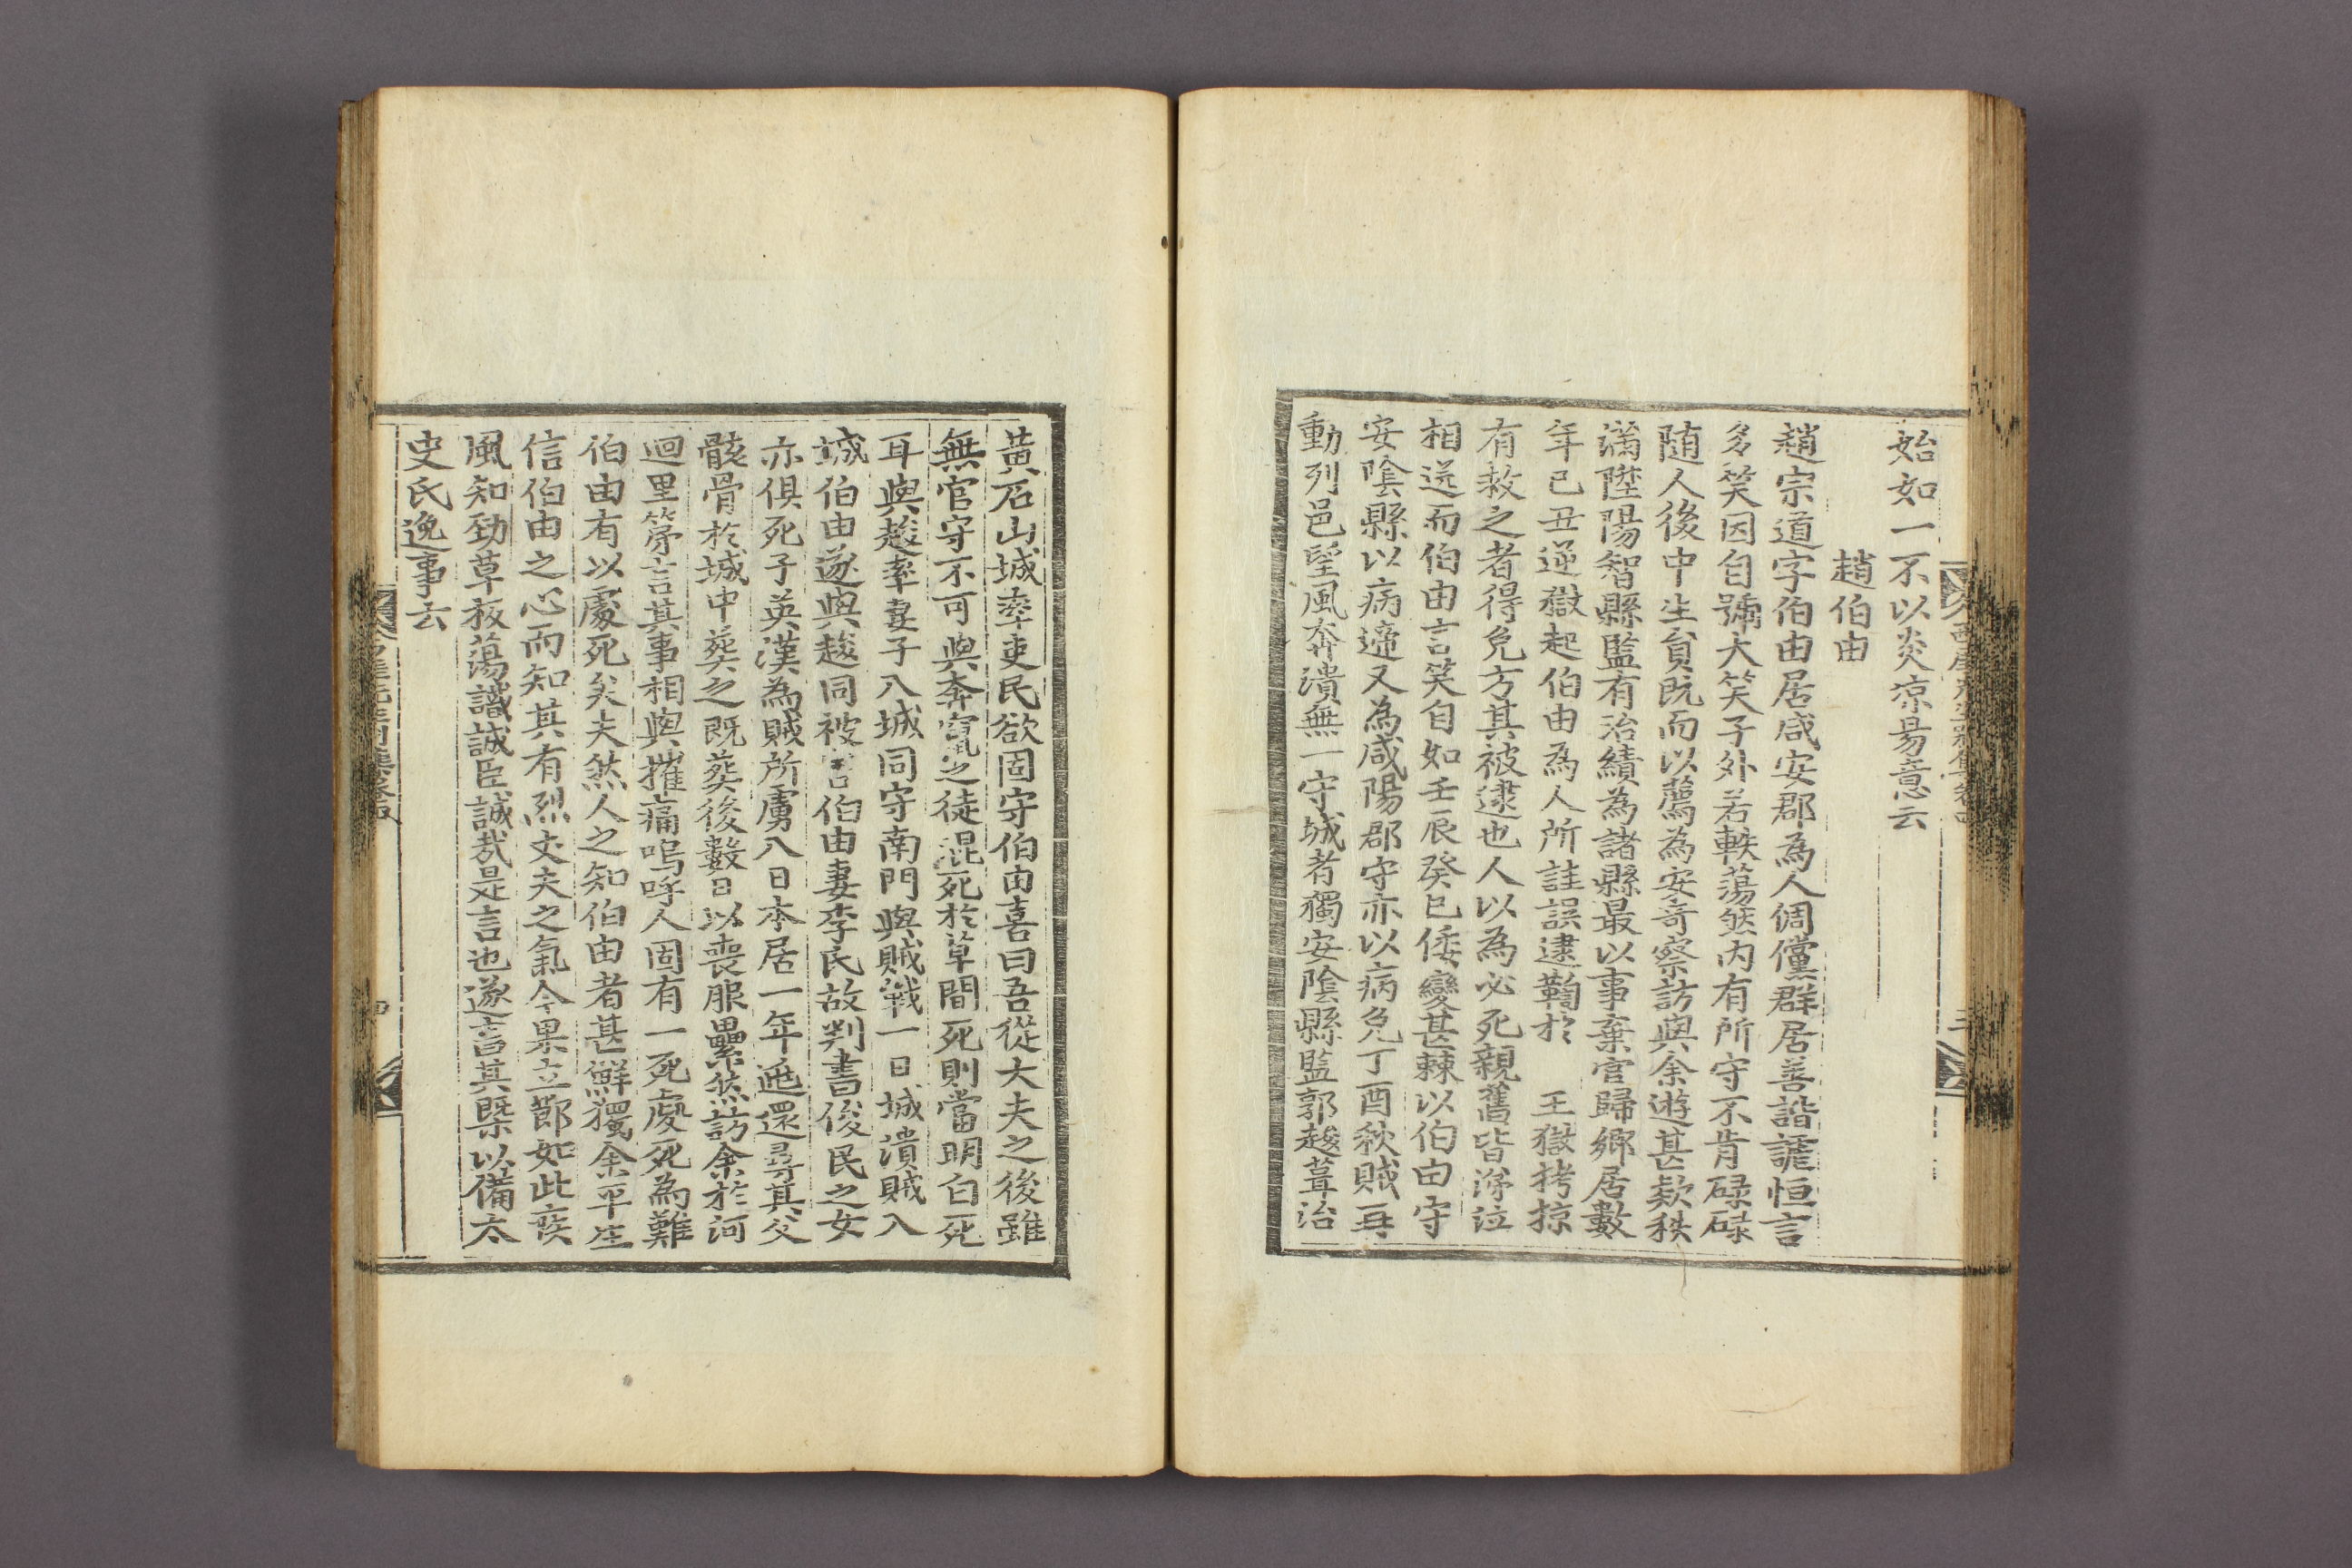 始如一不以炎凉易意云
趙伯由
趙宗道字伯由居咸安郡為人倜儻群居善諧謔恒言
多笑因自號大笑子外若軼蕩然内有所守不肯碌碌
随人後中生貟既而以薦為安奇察訪與余遊甚欵秩
滿陞陽智縣監有治績為諸縣最以事棄官歸鄉居數
年己丑逆獄起伯由為人所詿誤逮鞫於 王獄拷掠
有救之者得免方其被逮也人以為必死親舊皆涕泣
相送而伯由言笑自如壬辰癸巳倭變甚棘以伯由守
安陰縣以病遆又為咸陽郡守亦以病免丁酉秋賊再
動列邑望風奔潰無一守城者獨安陰縣監郭䞭葺治
黃石山城率吏民欲固守伯由喜曰吾從大夫之後雖
無官守不可與奔竄之徒混死於草間死則當明白死
耳與䞭率妻子入城同守南門與賊戰一日城潰賊入
城伯由遂與䞭同被害伯由妻李氏故判書俊民之女
亦俱死子英漢為賊所虜入日本居一年逃還尋其父
骸骨於城中葬之既葬後數日以喪服纍然訪余於河
迴里第言其事相與摧痛嗚呼人固有一死處死為難
伯由有以處死矣夫然人之知伯由者甚鮮獨余平生
信伯由之心而知其有烈丈夫之氣今果立節如此疾
風知勁草板蕩識誠臣誠哉是言也遂言其槩以備太
史氏逸事云